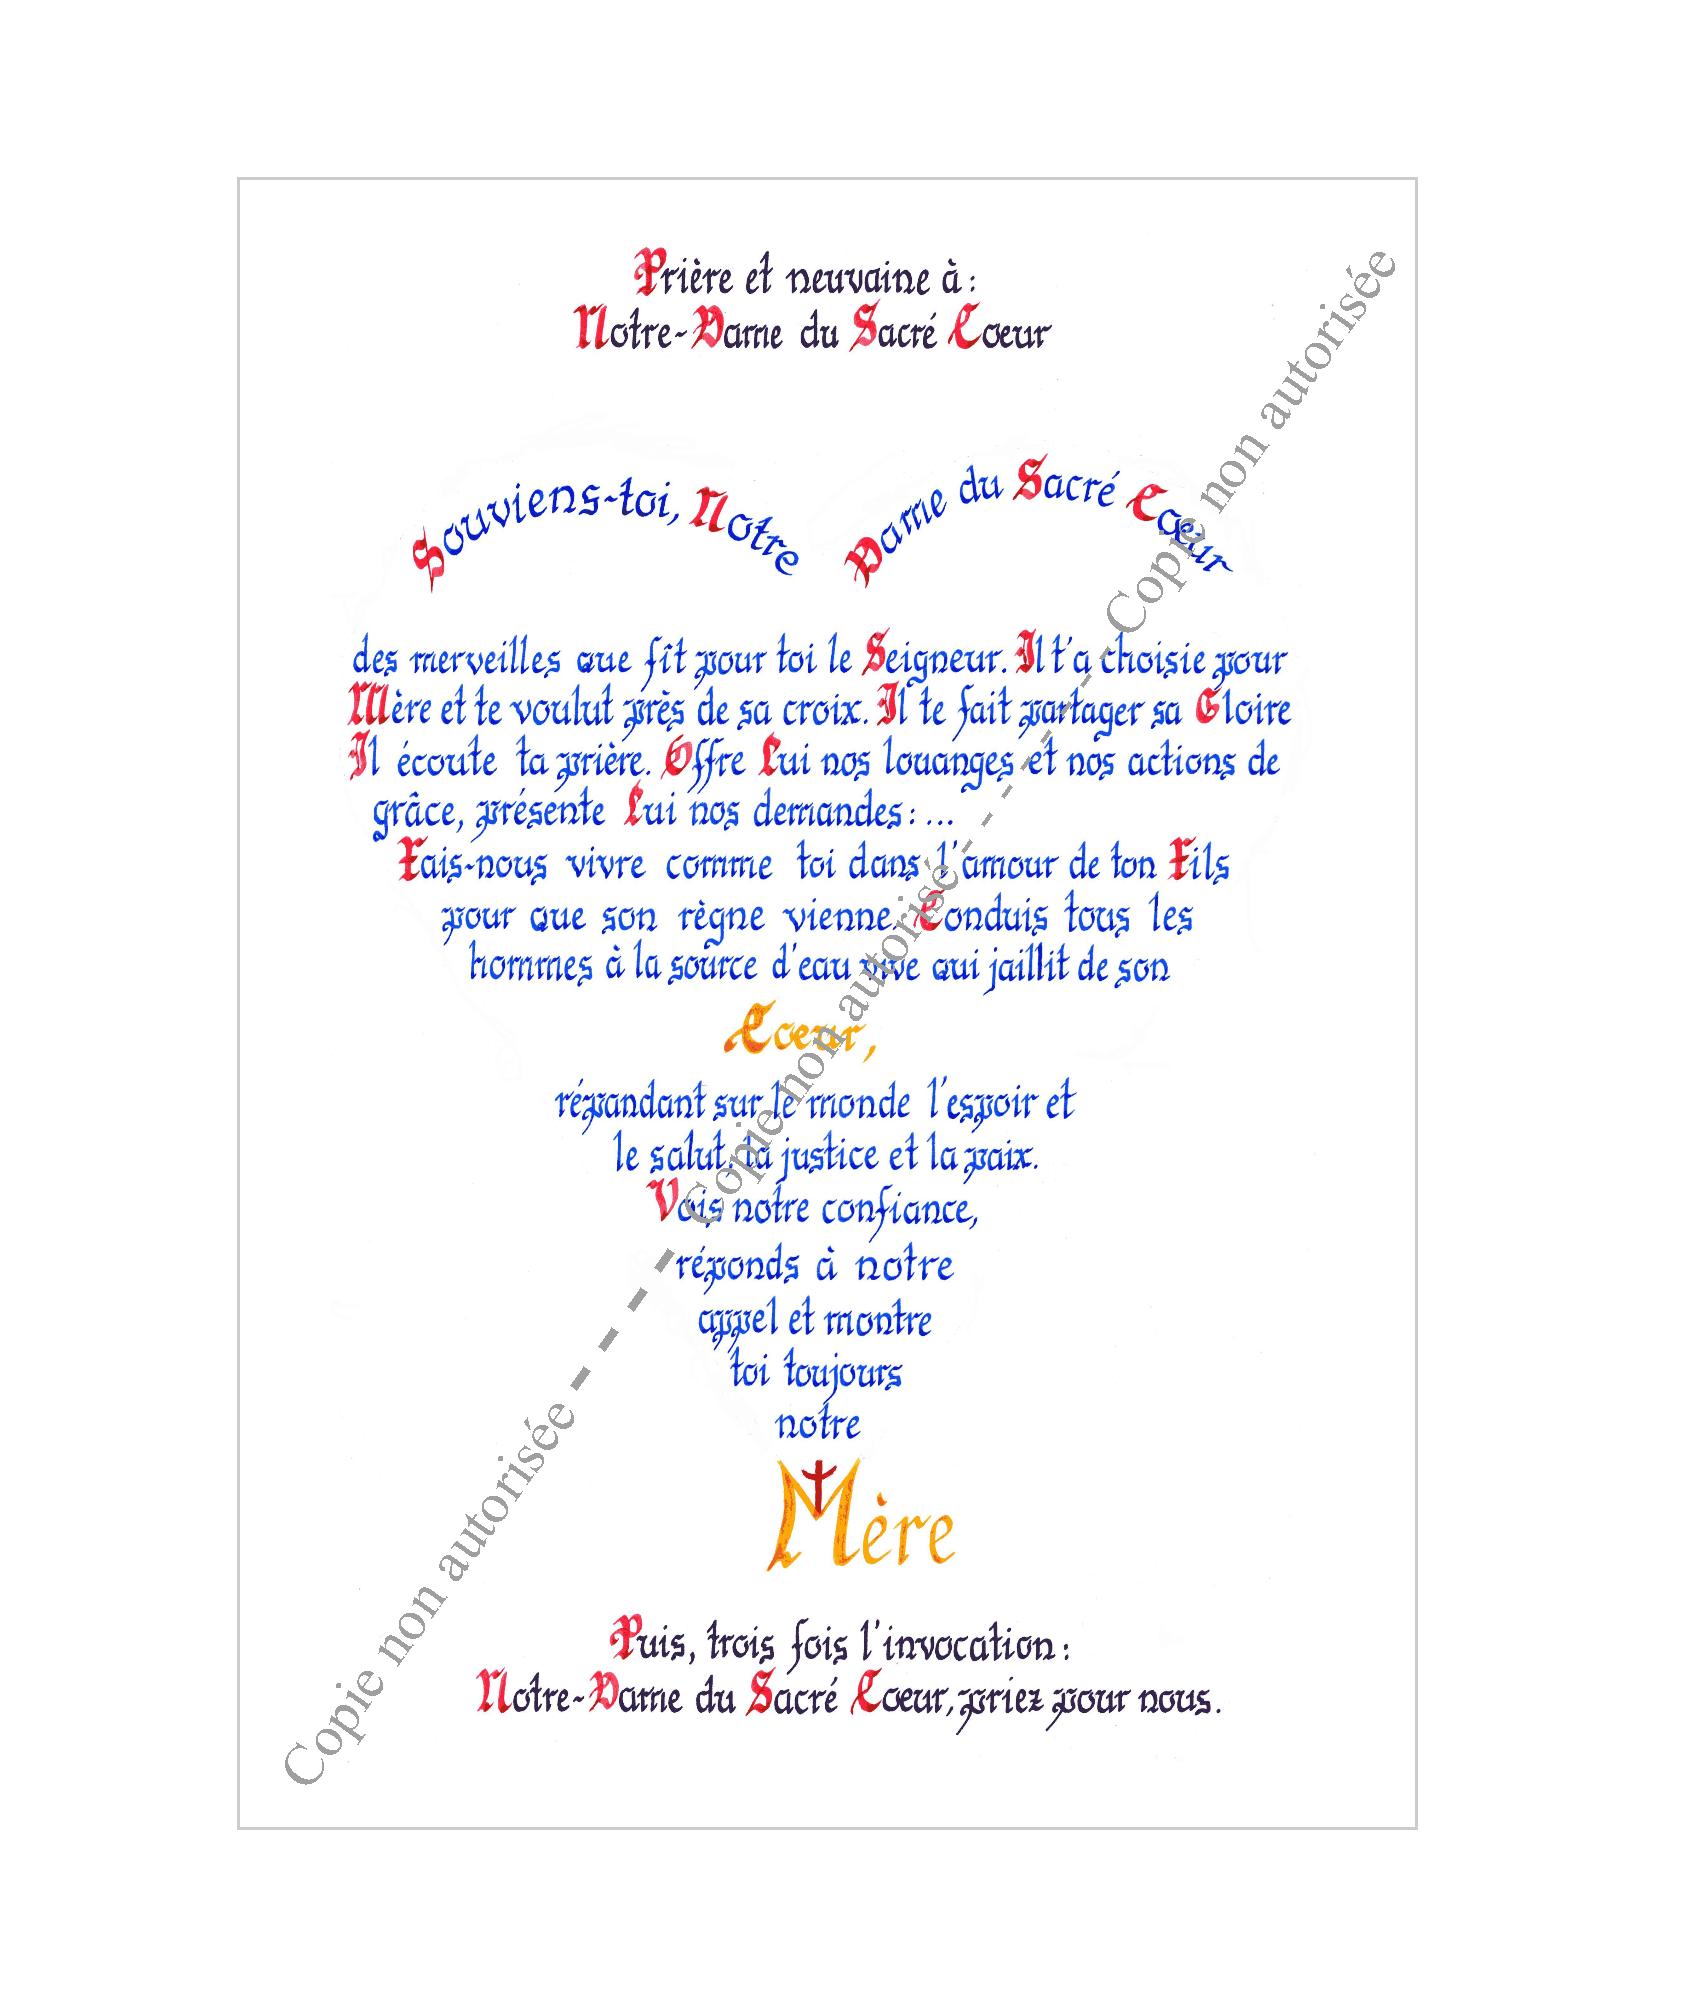 Prière et neuvaine à :
Notre-Dame du Sacré Coeur
Souviens-toi, Notre Dame du Sacré Cœur
des merveilles que fît pour toi le Seigneur. Il t'a choisie pour
Mère et te voulut près de sa croix. Il te fait partager sa Gloire
Il écoute ta prière. Offre Lui nos louanges et nos actions de
grâce, présente Lui nos demandes : ...
Fais-nous vivre comme toi dans l'amour de ton Fils
pour que son règne vienne. Conduis tous les
hommes à la source d'eau vive qui jaillit de son
Cœur,
répandant sur le monde l'espoir et
le salut, la justice et la paix.
Vois notre confiance,
réponds à notre
appel et montre
toi toujours
notre
Mère
Puis, trois fois l'invocation :
Notre-Dame du Sacré Coeur, priez pour nous.
Copie non autorisée - - - - Copie non autorisée - - - - Copie non autorisée